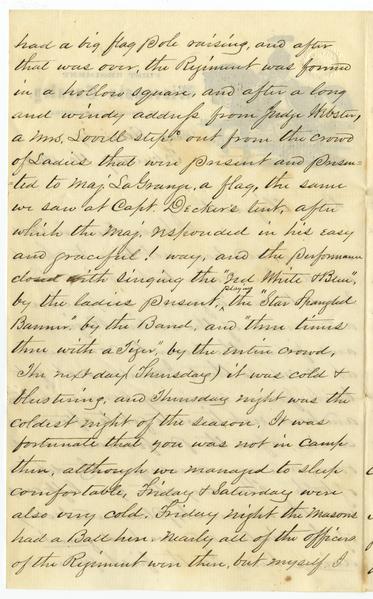 had a big flag pole raising, and after
that was over, the Regiment was formed
in a hollow square, and after a long
and windy address from Judge Webster,
a Mrs. Lovill step'd out from the crowd
of Ladies that were present and presen-
=ted to Maj. LaGrange, a flag, the same
we saw at Capt. Decker's tent, after
which the Maj. responded in his easy
and graceful! way, and the performance
closed with singing the "Red White & Blue",
by the ladies present, playing the "Star Spangled
Banner", by the Band, and three times
three with a "Tiger", by the entire crowd.
The next day (Thursday) it was cold &
blustering, and Thursday night was the
coldest night of the season. It was
fortunate that you was not in camp
then, although we managed to sleep
comfortable, Friday & Saturday were
also very cold. Friday night the Masons
had a Ball here. Nearly all of the officers
of the Regiment were there, but myself. I